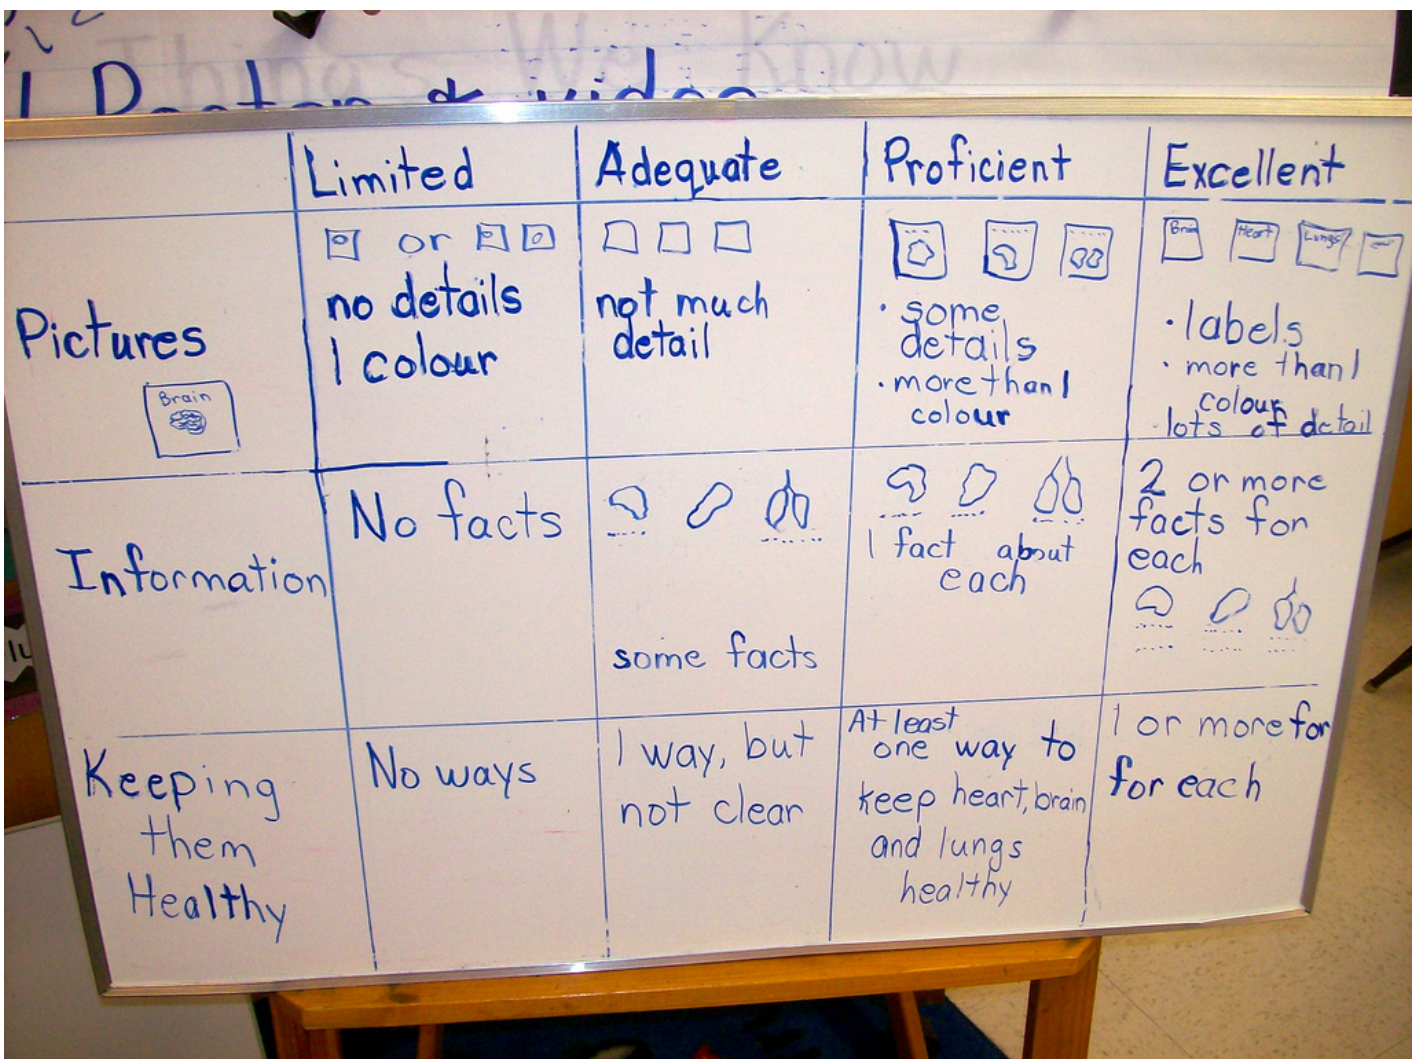 Things We Know
Poster & video
Limited
Adequate
Proficient
Excellent
Pictures
Brain
or
no details
1 colour
not much
detail
· some
details
· more than 1
colour
Brain
Heart
Lungs
· labels
· more than 1
colour
· lots of detail
Information
No facts
some facts
1 fact about
each
2 or more
facts for
each
Keeping
them
Healthy
No ways
1 way, but
not clear
At least
one way to
keep heart, brain
and lungs
healthy
1 or more for
for each